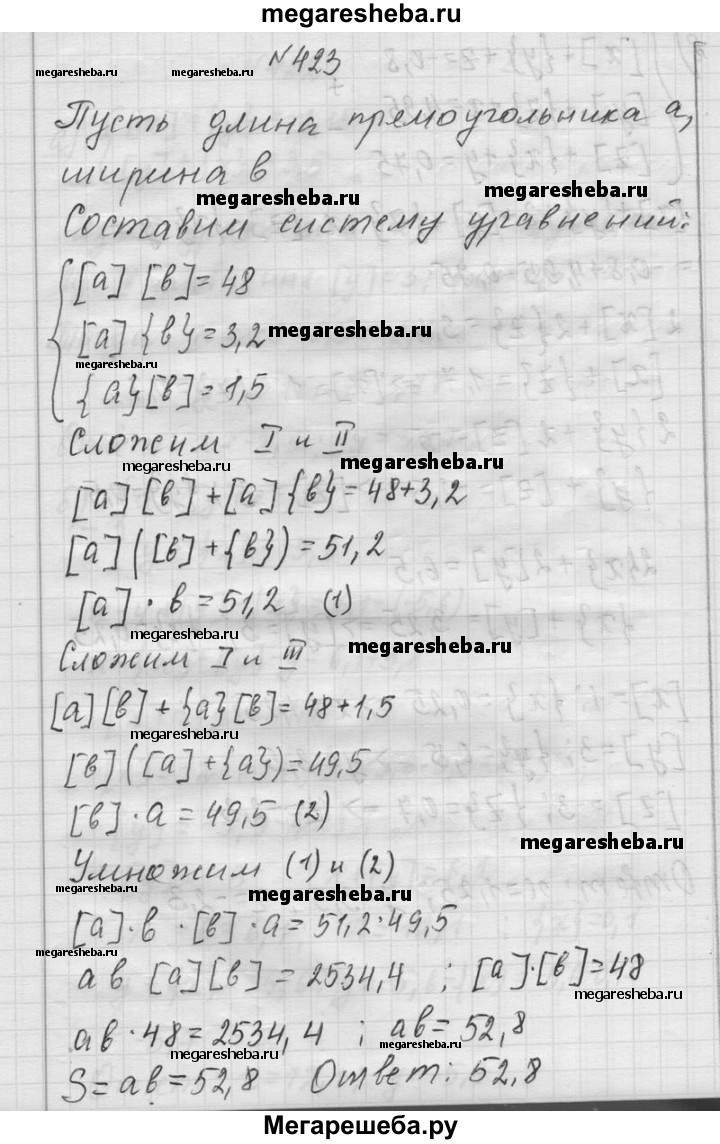 megaresheba.ru
N423
megaresheba.ru megaresheba.ru
Пусть длина прямоугольника a,
megaresheba.ru
ширина в
megaresheba.ru megaresheba.ru
Составим систему уравнений:
[a] [в] = 48
[a] {в} = 3,2
megaresheba.ru
megaresheba.ru
{a}[в] = 1,5
Сложим I и II
megaresheba.ru megaresheba.ru
[a][в] + [a]{в} = 48+3,2
[a] ([в] + {в}) = 51,2
[a] · в = 51,2 (1)
megaresheba.ru
megaresheba.ru
Сложим I и III
[a][в] + {a}[в] = 48+1,5
megaresheba.ru megaresheba.ru
[в] ([a] + {a}) = 49,5
[в] · a = 49,5 (2)
megaresheba.ru
Умножим (1) и (2)
megaresheba.ru
megaresheba.ru
[a] · в · [в] · a = 51,2 · 49,5
megaresheba.ru
aв [a][в] = 2534,4 ; [a]·[в] = 48
megaresheba.ru
aв · 48 = 2534,4 ; aв = 52,8
megaresheba.ru
megaresheba.ru
S = aв = 52,8 Ответ: 52,8
megaresheba.ru
Мегарешеба.ру